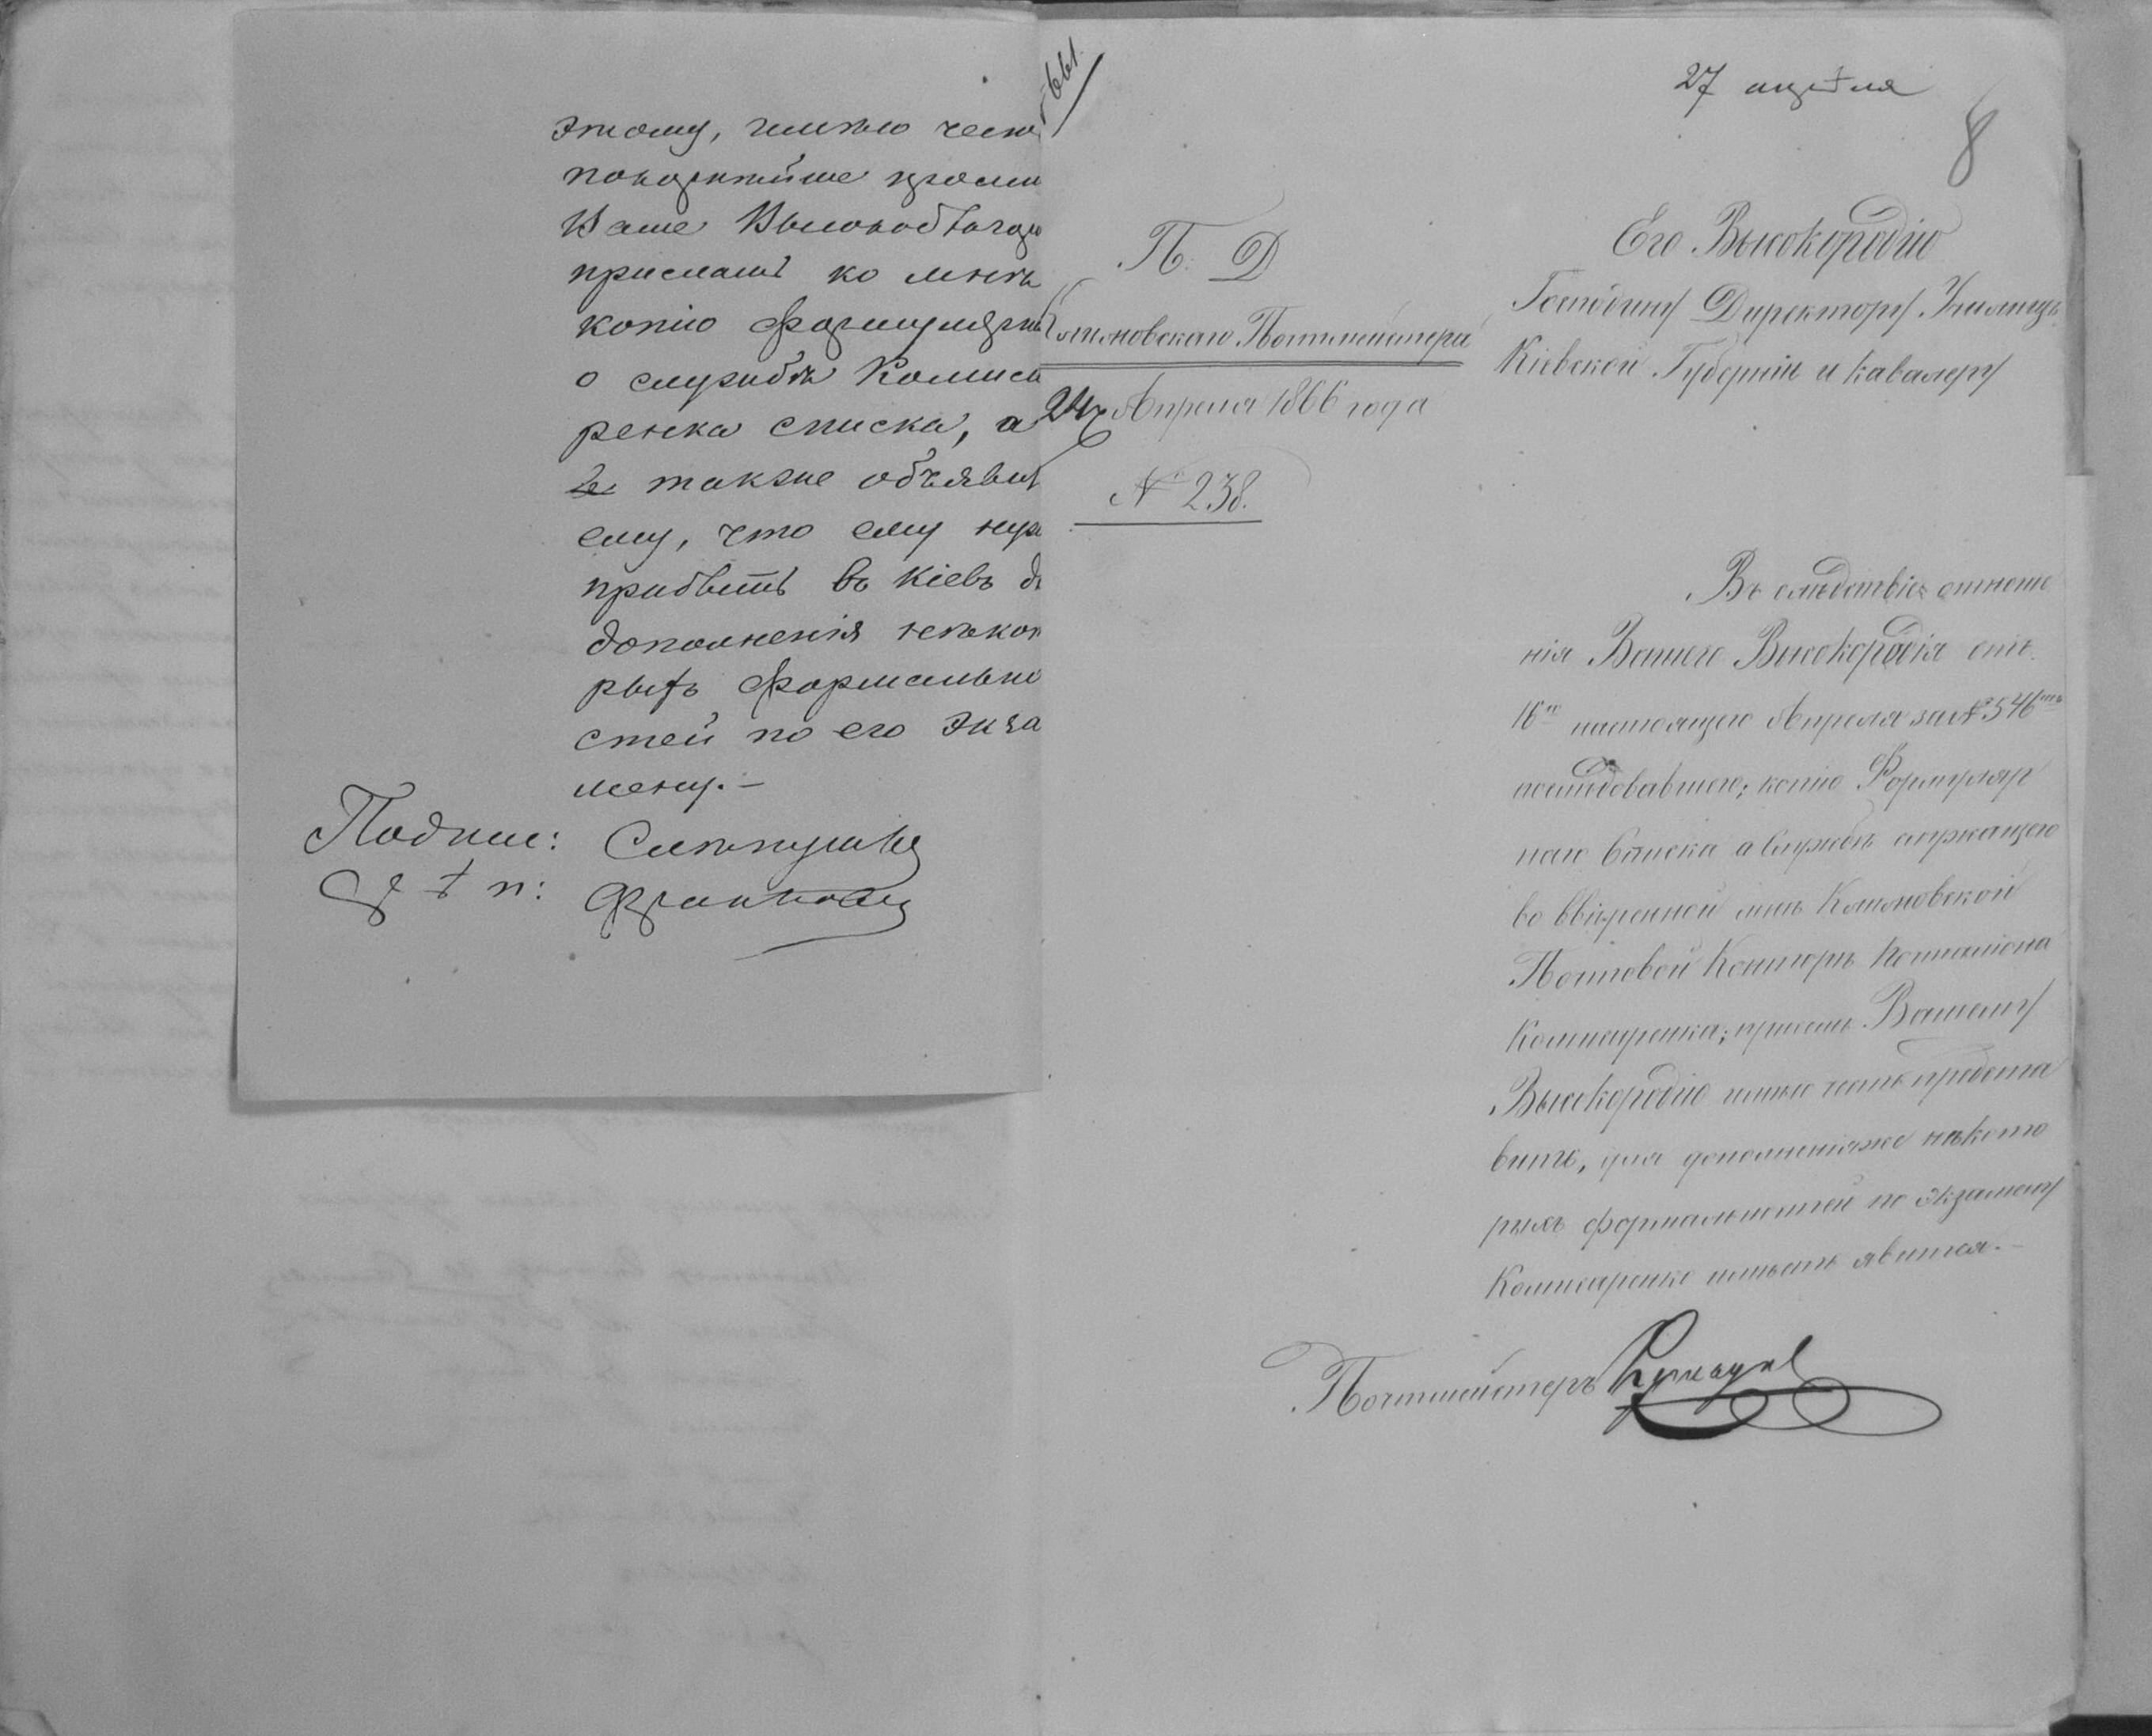 этому, имѣю чес
покорнѣйше проси
Ваше Высокоблагор
прислать ко мнѣ
копію формулярн
о службѣ Комиса
ренка списка, а
также объявит
ему, что ему нуж
прибыть въ Кіевъ д
дополненія нѣкот
рыхъ формально
стей по его экза
мену.—
Подпис:
661.
27 апрѣля
8
П. Д
Почтмейстера
24 Апреля 1866 года
№ 238.
Его Высокородію
Господину Директору Училищъ
Кіевской Губерніи и кавалеру
Въ слѣдствіе отноше
нія Вашего Высокородія отъ
16го настоящего Апреля за № 546мъ
послѣдовавшего; копію Формуляр
наго Списка о Службѣ служащего
во ввѣренной мнѣ
Почтовой Конторѣ Почталіона
Комисаренка; присемъ Вашему
Высокородію имѣю честь предста
вить, для дополненія же нѣкото
рыхъ формальностей по экзамену
Комисаренко имѣетъ явится.—
Почтмейстеръ